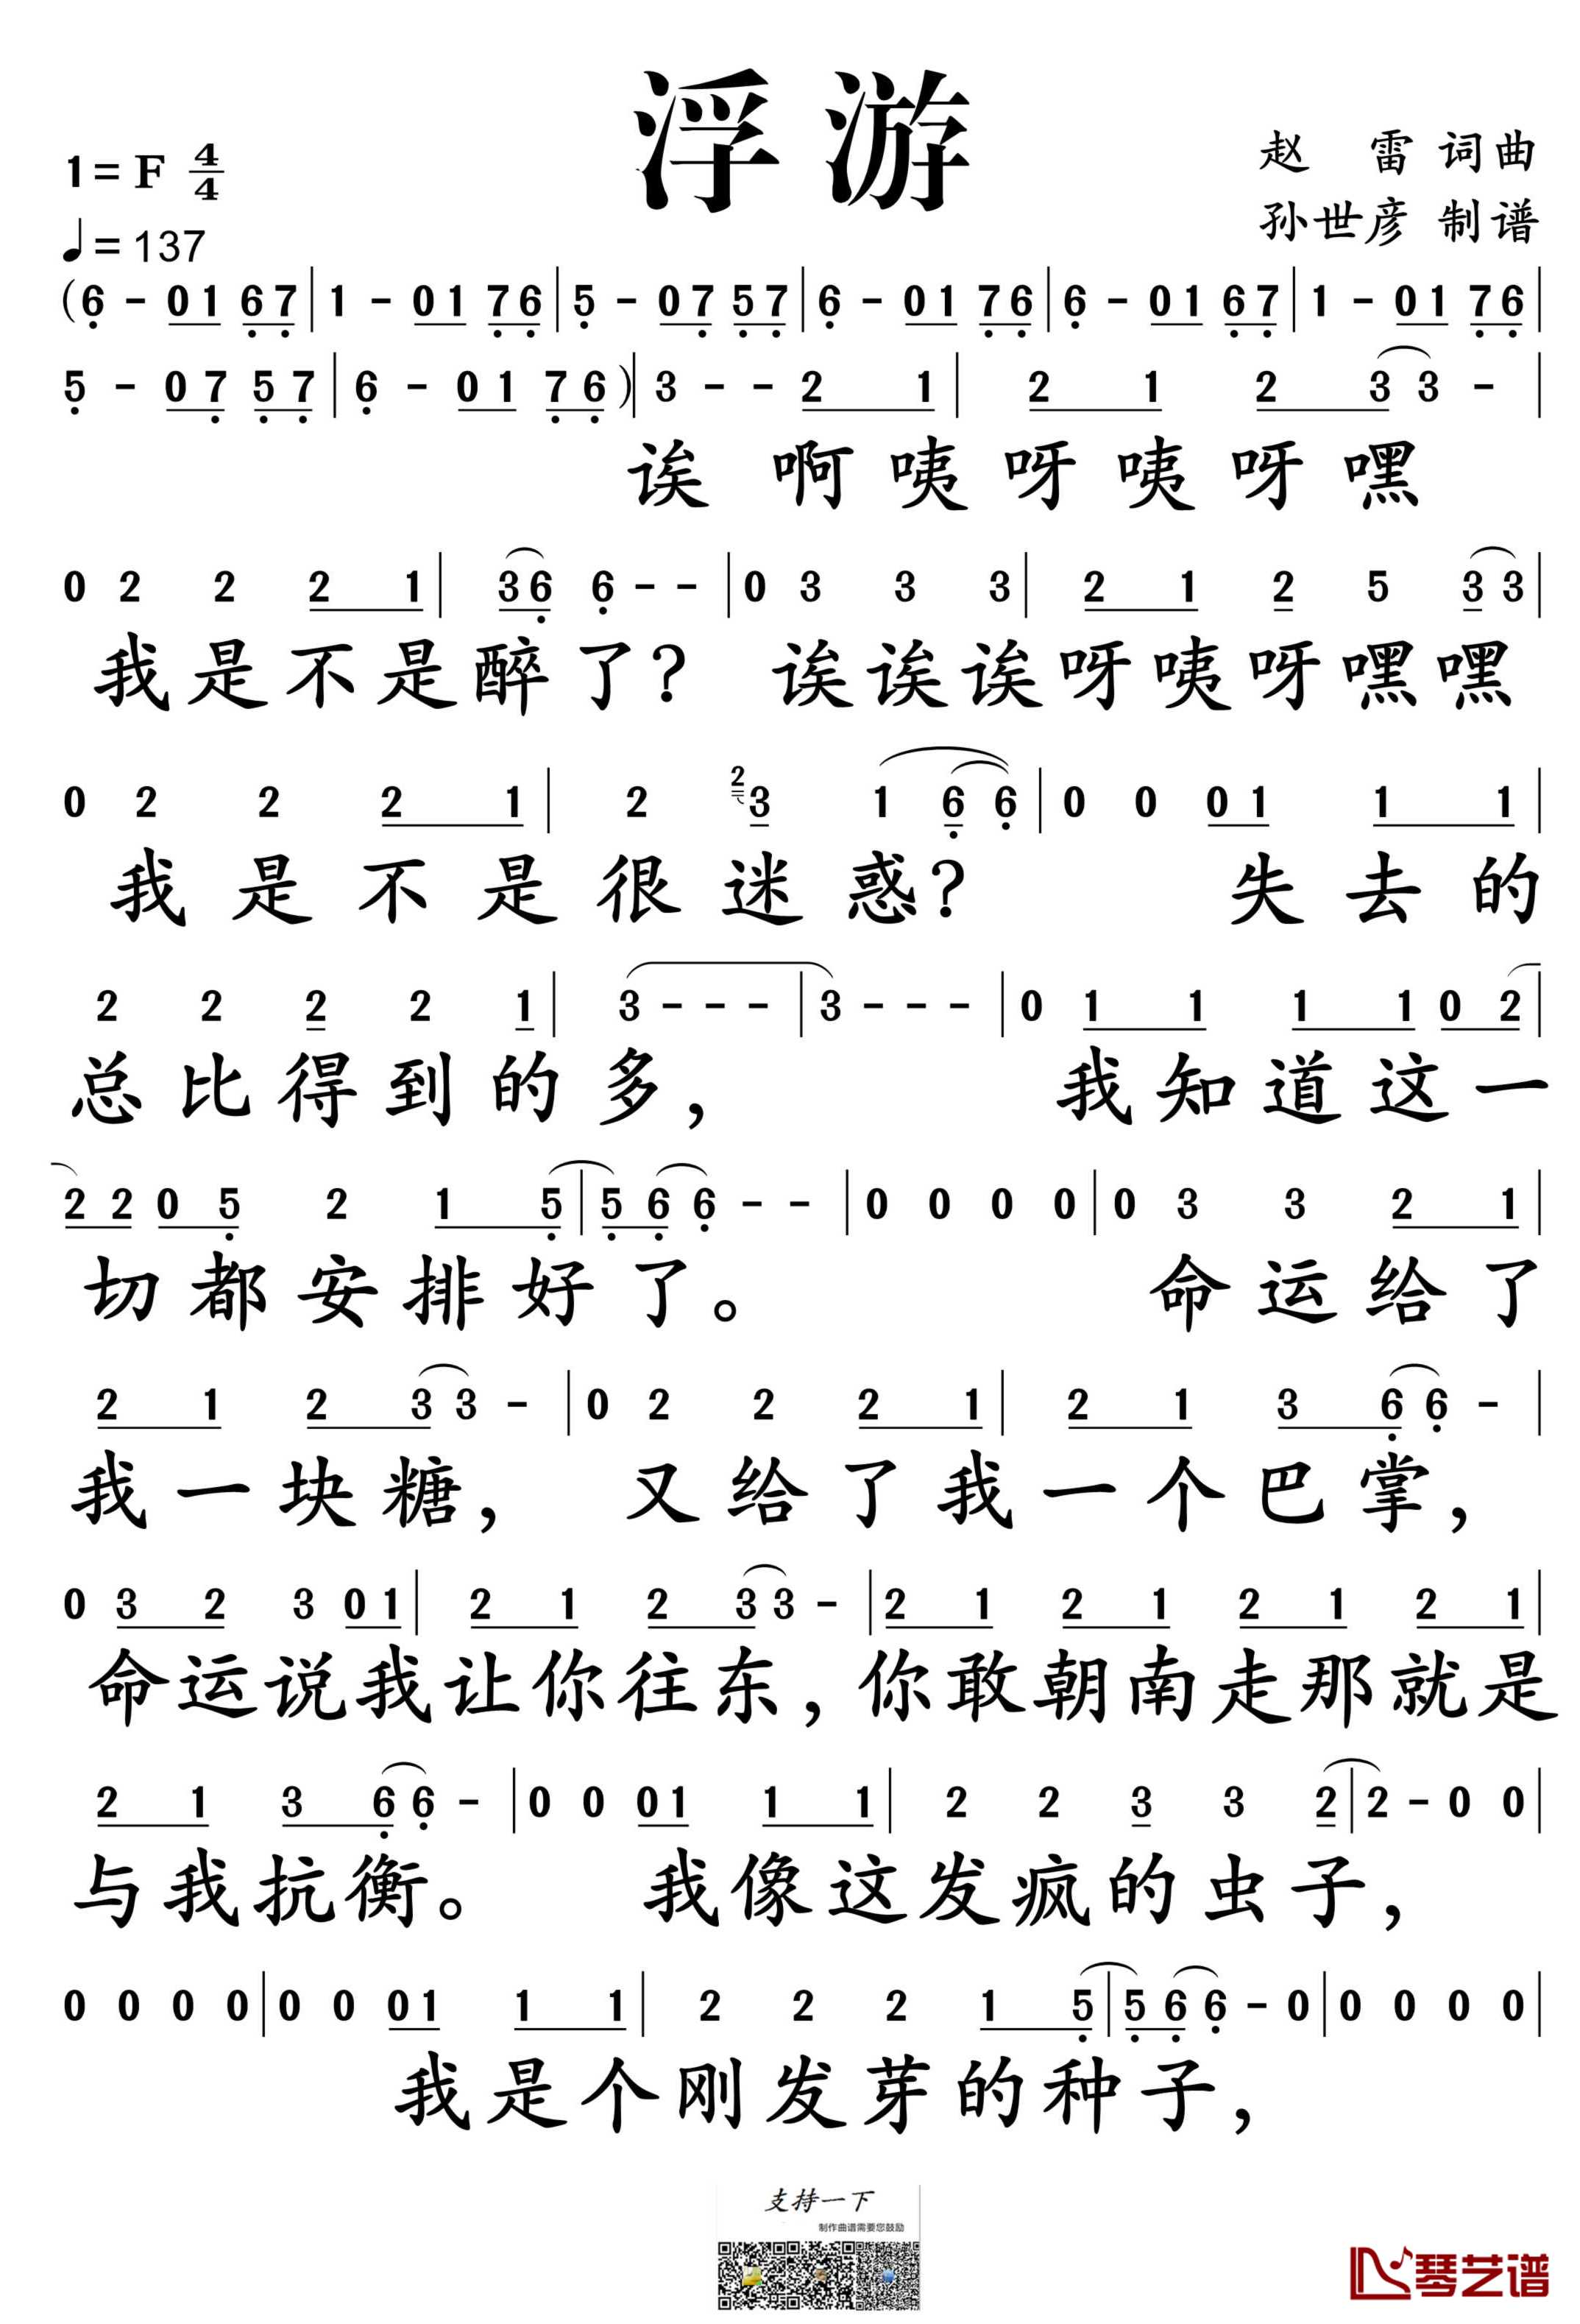 浮游
1=F 4/4
赵 雷 词曲
♩=137
孙世彦 制谱
(6 - 01 67|1 - 01 76|5 - 07 57|6 - 01 76|6 - 01 67|1 - 01 76|
5 - 07 57|6 - 01 76)|3 - - 2 1|2 1 2 3 3 -|
诶 啊 咦 呀 咦 呀 嘿
0 2 2 2 1|3 6 6 - -|0 3 3 3|2 1 2 5 3 3|
我 是 不 是 醉 了? 诶 诶 诶 呀 咦 呀 嘿 嘿
0 2 2 2 1|2 2 3 1 6 6|0 0 01 1 1|
我 是 不 是 很 迷 惑? 失 去 的
2 2 2 2 1|3 - - -|3 - - -|0 1 1 1 1 0 2|
总 比 得 到 的 多, 我 知 道 这 一
2 2 0 5 2 1 5|5 6 6 - -|0 0 0 0|0 3 3 2 1|
切 都 安 排 好 了。 命 运 给 了
2 1 2 3 3 -|0 2 2 2 1|2 1 3 6 6 -|
我 一 块 糖, 又 给 了 我 一 个 巴 掌,
0 3 2 3 01|2 1 2 3 3 -|2 1 2 1 2 1 2 1|
命 运 说 我 让 你 往 东, 你 敢 朝 南 走 那 就 是
2 1 3 6 6 -|0 0 01 1 1|2 2 3 3 2|2 - 0 0|
与 我 抗 衡。 我 像 这 发 疯 的 虫 子,
0 0 0 0|0 0 01 1 1|2 2 2 1 5|5 6 6 - 0|0 0 0 0|
我 是 个 刚 发 芽 的 种 子,
支持一下
制作曲谱需要您鼓励
琴艺谱